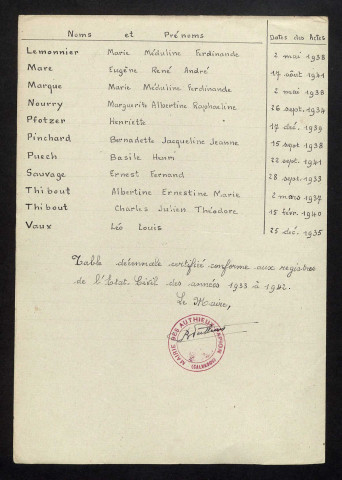 Noms et Prénoms Dates des Actes
Lemonnier Marie Méduline Ferdinande 2 mai 1938
Marc Eugène René André 17 août 1941
Marque Marie Méduline Ferdinande 2 mai 1938
Nourry Marguerite Albertine Raphaeline 26 sept. 1934
Pfotzer Henriette 17 déc. 1939
Pinchard Bernadette Jacqueline Jeanne 15 sept 1938
Puech Basile Henri 22 sept. 1941
Sauvage Ernest Fernand 28 sept. 1933
Thibout Albertine Ernestine Marie 2 mars 1937
Thibout Charles Julien Théodore 15 févr. 1940
Vaux Léo Louis 25 déc. 1935
Table décennale certifiée conforme aux registres
de l'Etat-Civil des années 1933 à 1942.
Le Maire,
MAIRIE DES AUTHIEUX-PAPION
(CALVADOS)